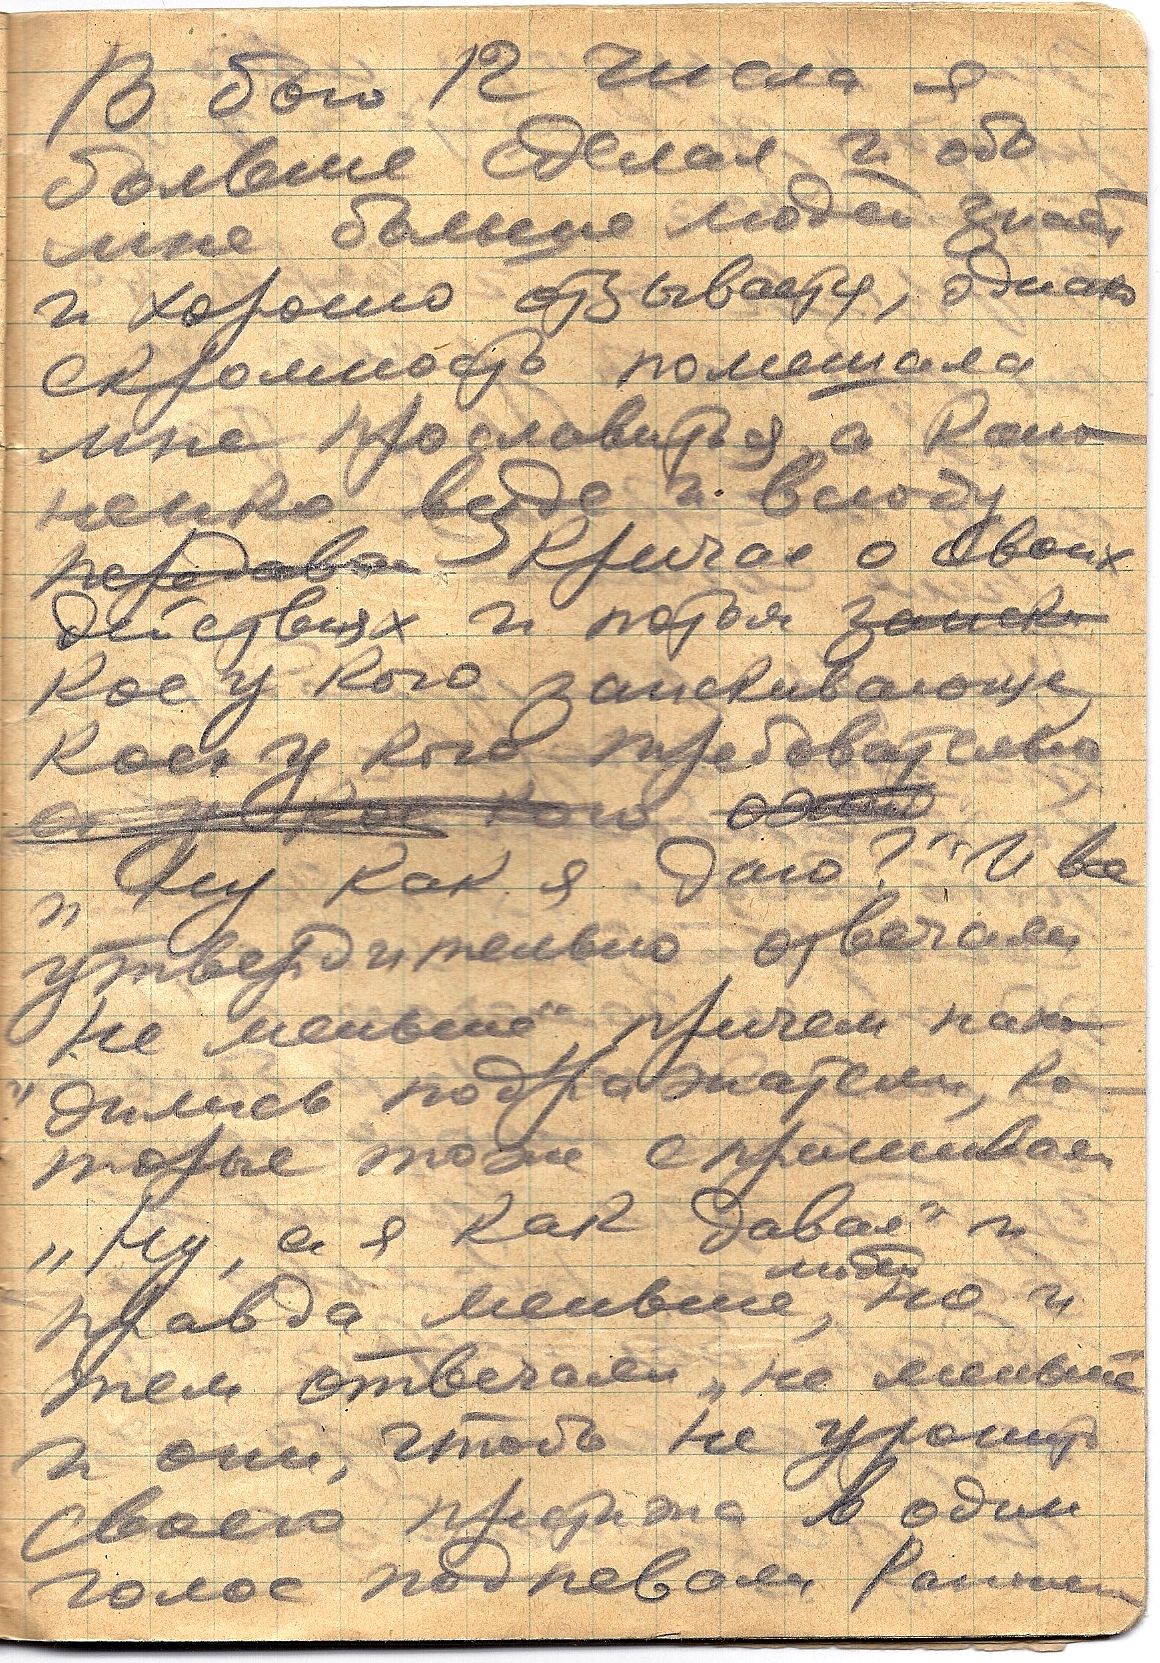 В бою 12 числа я
больше сделал и обо
мне больше людей знает
и хорошо отзывается, однако
скромность помешала
мне прославиться, а
везде и всюду
передавал кричал о своих
действиях и потом заиски
кое у кого заискивающе,
кое у кого требовательно
кого
„Ну как я даю?" И все
утвердительно отвечали
не меньше" причем нахо
"дились подражатели, ко-
торые тоже спрашивали
„Ну, а я как давал" и
правда меньше, но и
тем отвечали „не меньше
и они, чтоб не уронить
своего престижа в один
голос подпевали